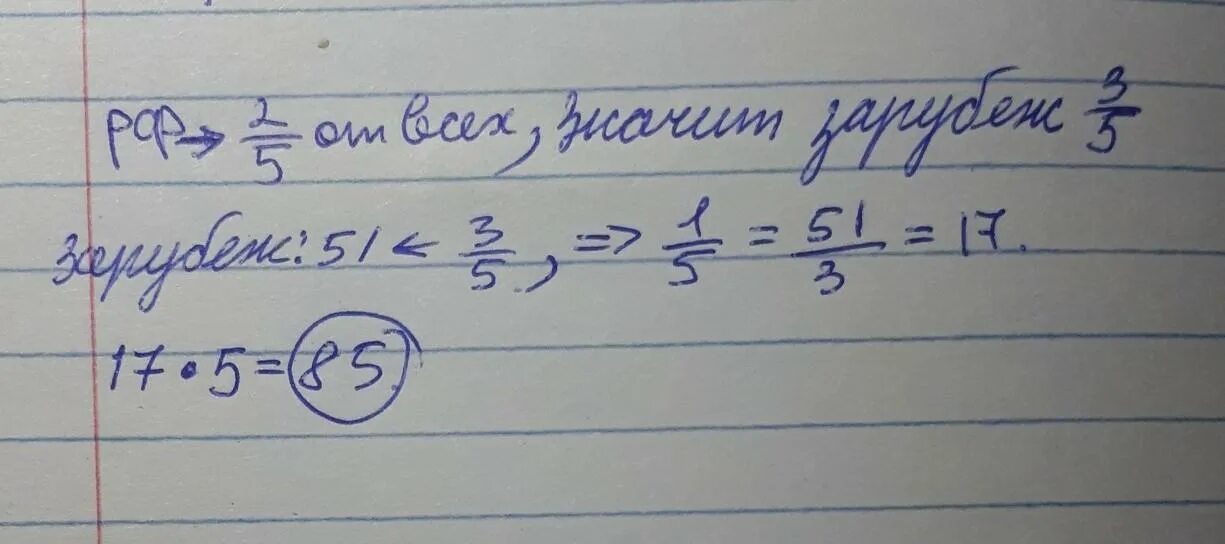 РФ → 2/5 от всех, значит зарубеж 3/5
зарубеж: 51 ← 3/5, => 1/5 = 51/3 = 17.
17 • 5 = 85